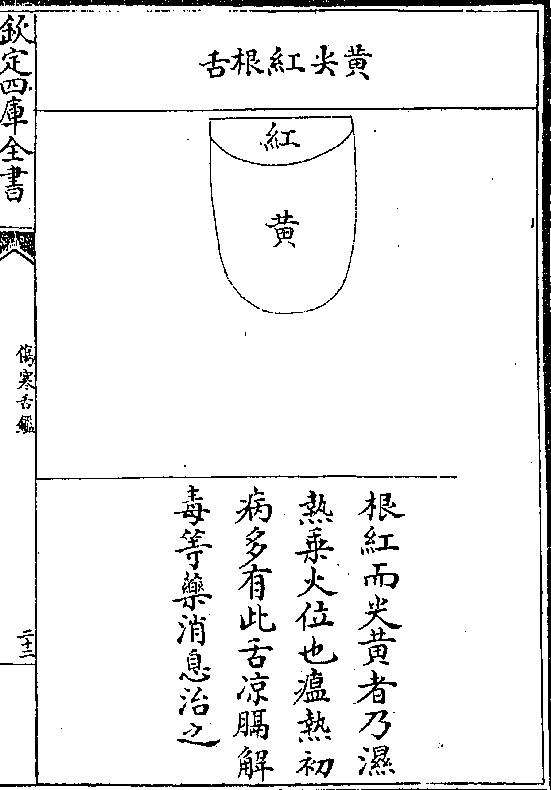 黄尖紅根舌
紅
黄
根紅而尖黄者乃濕
熱乗火位也瘟熱初
病多有此舌凉膈解
毒等藥消息治之
欽定四庫全書
傷寒舌鑑
二十二